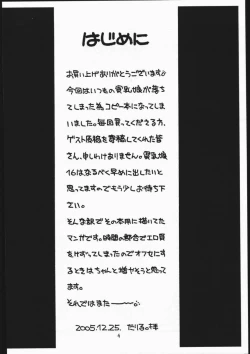 はじめに
お買い上げありがとうございます。
今回はいつもの貧乳娘が落ち
てしまった為コピー本になってしま
いました。毎回買ってくださる方、
ゲスト原稿を寄稿してくれた皆
さん、申しわけありません。貧乳娘
16はなるべく早めに出したいと
思ってますのでもう少しお待ち下
さい。
そんな訳でその本用に描いてた
マンガです。時間の都合でエロ頁
をけずってしまったのでオフセにす
るときはちゃんと増ヤそうと思って
ます。
それではまたーーー
2005.12.25.
4